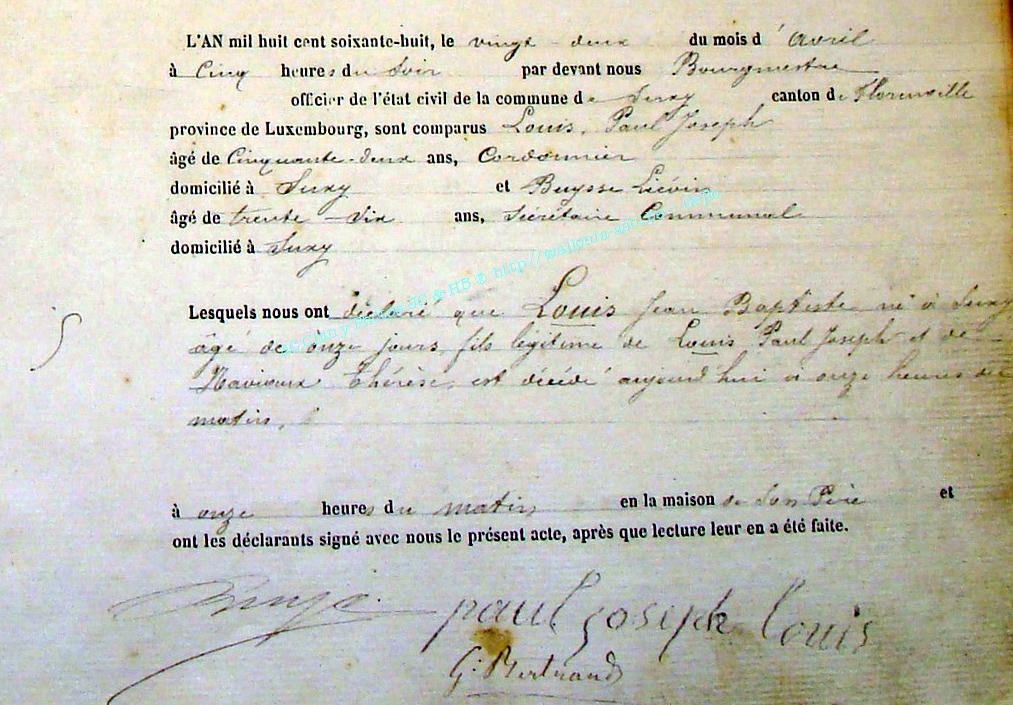 L'AN mil huit cent soixante-huit, le vingt-deux du mois d'avril
à cinq heures du soir par devant nous Bourgmestre
officier de l'état civil de la commune de Suxy canton de Florenville
province de Luxembourg, sont comparus Louis, Paul Joseph
âgé de cinquante-deux ans, Cordonnier
domicilié à Suxy et Buysse Liévin
âgé de trente-six ans, Sécrétaire Communal
domicilié à Suxy
Lesquels nous ont déclaré que Louis Jean Baptiste né à Suxy
âgé de onze jours, fils légitime de Louis Paul Joseph et de
Thérèse, est décédé aujourd'hui à onze heures du
matin,
à onze heures du matin en la maison de son Père et
ont les déclarants signé avec nous le présent acte, après que lecture leur en a été faite.
paul joseph louis
G. Bertrand